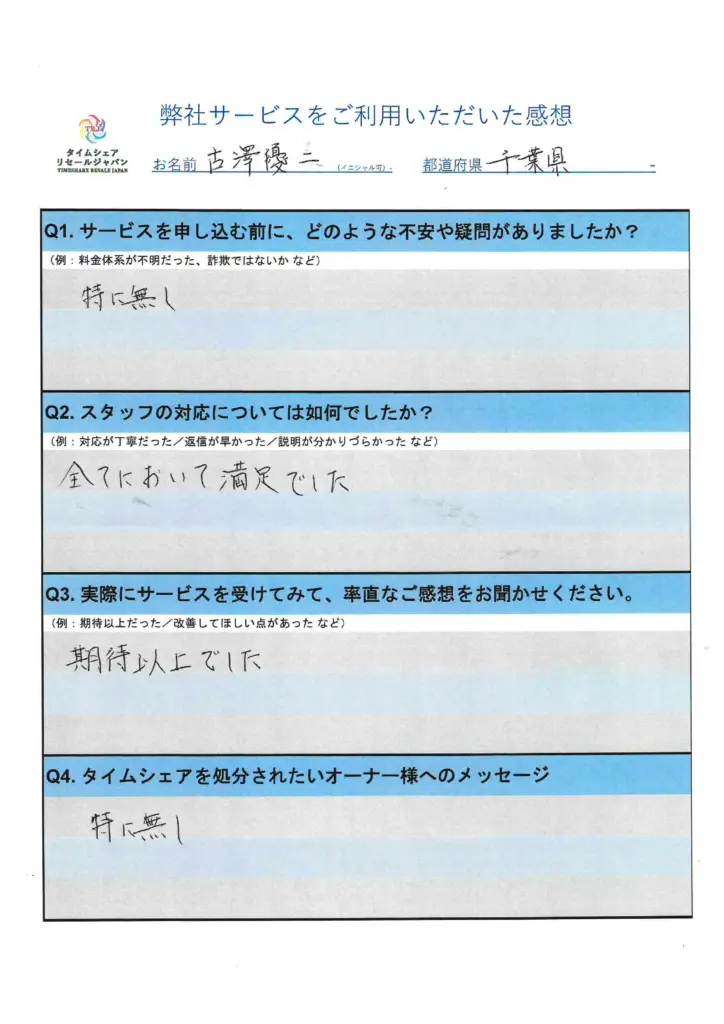 弊社サービスをご利用いただいた感想
TRJ
タイムシェア
リセールジャパン
TIMESHARE RESALE JAPAN
お名前 古澤優二 (イニシャル可)- 都道府県 千葉県 -
Q1. サービスを申し込む前に、どのような不安や疑問がありましたか？
（例：料金体系が不明だった、詐欺ではないか など）
特に無し
Q2. スタッフの対応については如何でしたか？
（例：対応が丁寧だった／返信が早かった／説明が分かりづらかった など）
全てにおいて満足でした
Q3. 実際にサービスを受けてみて、率直なご感想をお聞かせください。
（例：期待以上だった／改善してほしい点があった など）
期待以上でした
Q4. タイムシェアを処分されたいオーナー様へのメッセージ
特に無し